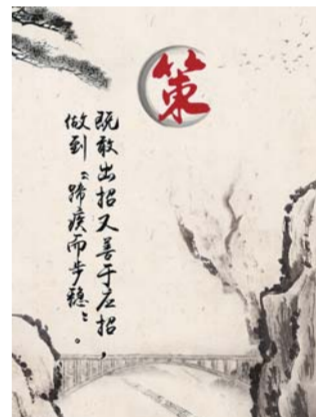 策
既敢出招又善于应招，
做到“蹄疾而步稳”。